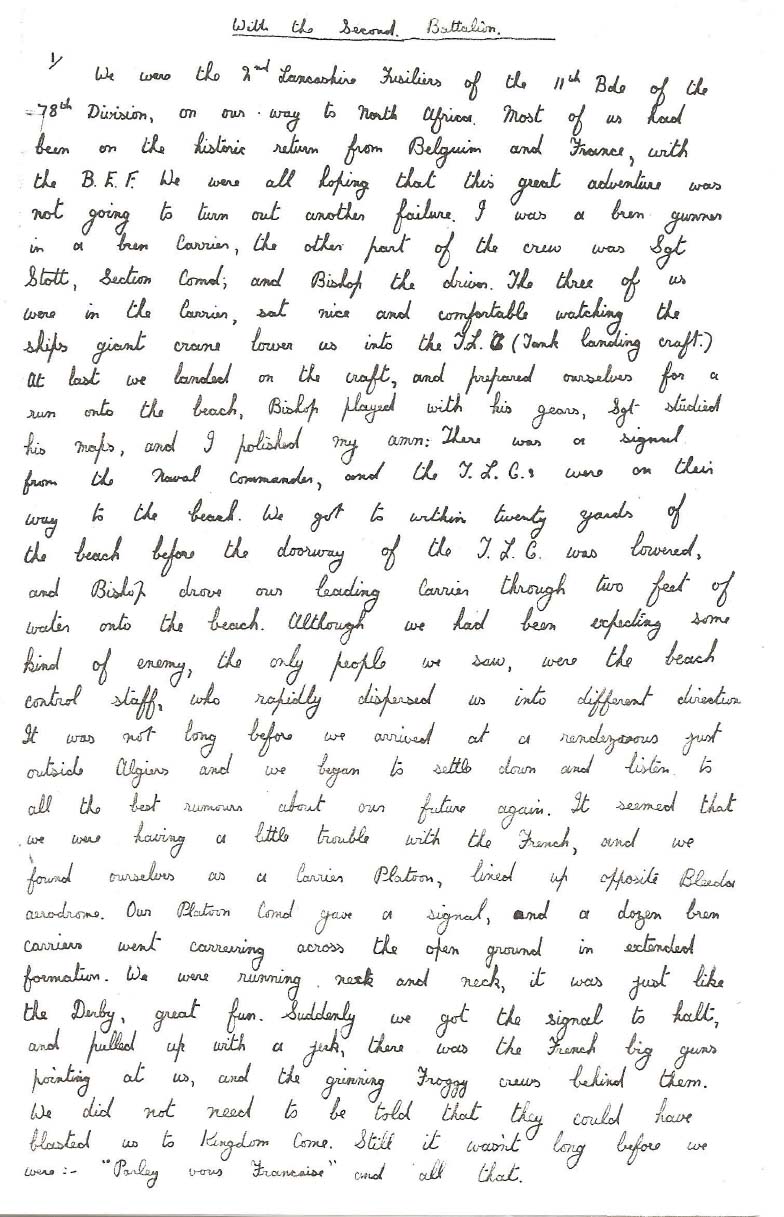 With the Second Battalion.
1/
We were the 2nd Lancashire Fusiliers of the 11th Bde of the
78th Division, on our way to North Africa. Most of us had
been on the historic return from Belguim and France, with
the B.E.F. We were all hoping that this great adventure was
not going to turn out another failure. I was a bren gunner
in a bren Carrier, the other part of the crew was Sgt
Stott, Section Comd; and Bishop the driver. The three of us
were in the Carrier, sat nice and comfortable watching the
ships giant crane lower us into the T.L.C (Tank landing craft.)
At last we landed on the craft, and prepared ourselves for a
run onto the beach, Bishop played with his gears, Sgt studied
his maps, and I polished my amn: There was a signal
from the Naval Commander, and the T.L.C.s were on their
way to the beach. We got to within twenty yards of
the beach before the doorway of the T.L.C. was lowered,
and Bishop drove our leading Carrier through two feet of
water onto the beach. Although we had been expecting some
kind of enemy, the only people we saw, were the beach
control staff, who rapidly dispersed us into different direction
It was not long before we arrived at a rendezvous just
outside Algiers and we began to settle down and listen to
all the best rumours about our future again. It seemed that
we were having a little trouble with the French, and we
found ourselves as a Carrier Platoon, lined up opposite Bleeda
aerodrome. Our Platoon Comd gave a signal, and a dozen bren
carriers went carreiring across the open ground in extended
formation. We were running neck and neck, it was just like
the Derby, great fun. Suddenly we got the signal to halt,
and pulled up with a jerk, there was the French big guns
pointing at us, and the grinning Froggy crews behind them.
We did not need to be told that they could have
blasted us to Kingdom Come. Still it wasn't long before we
were :- "Parley vous Francaise" and all that.